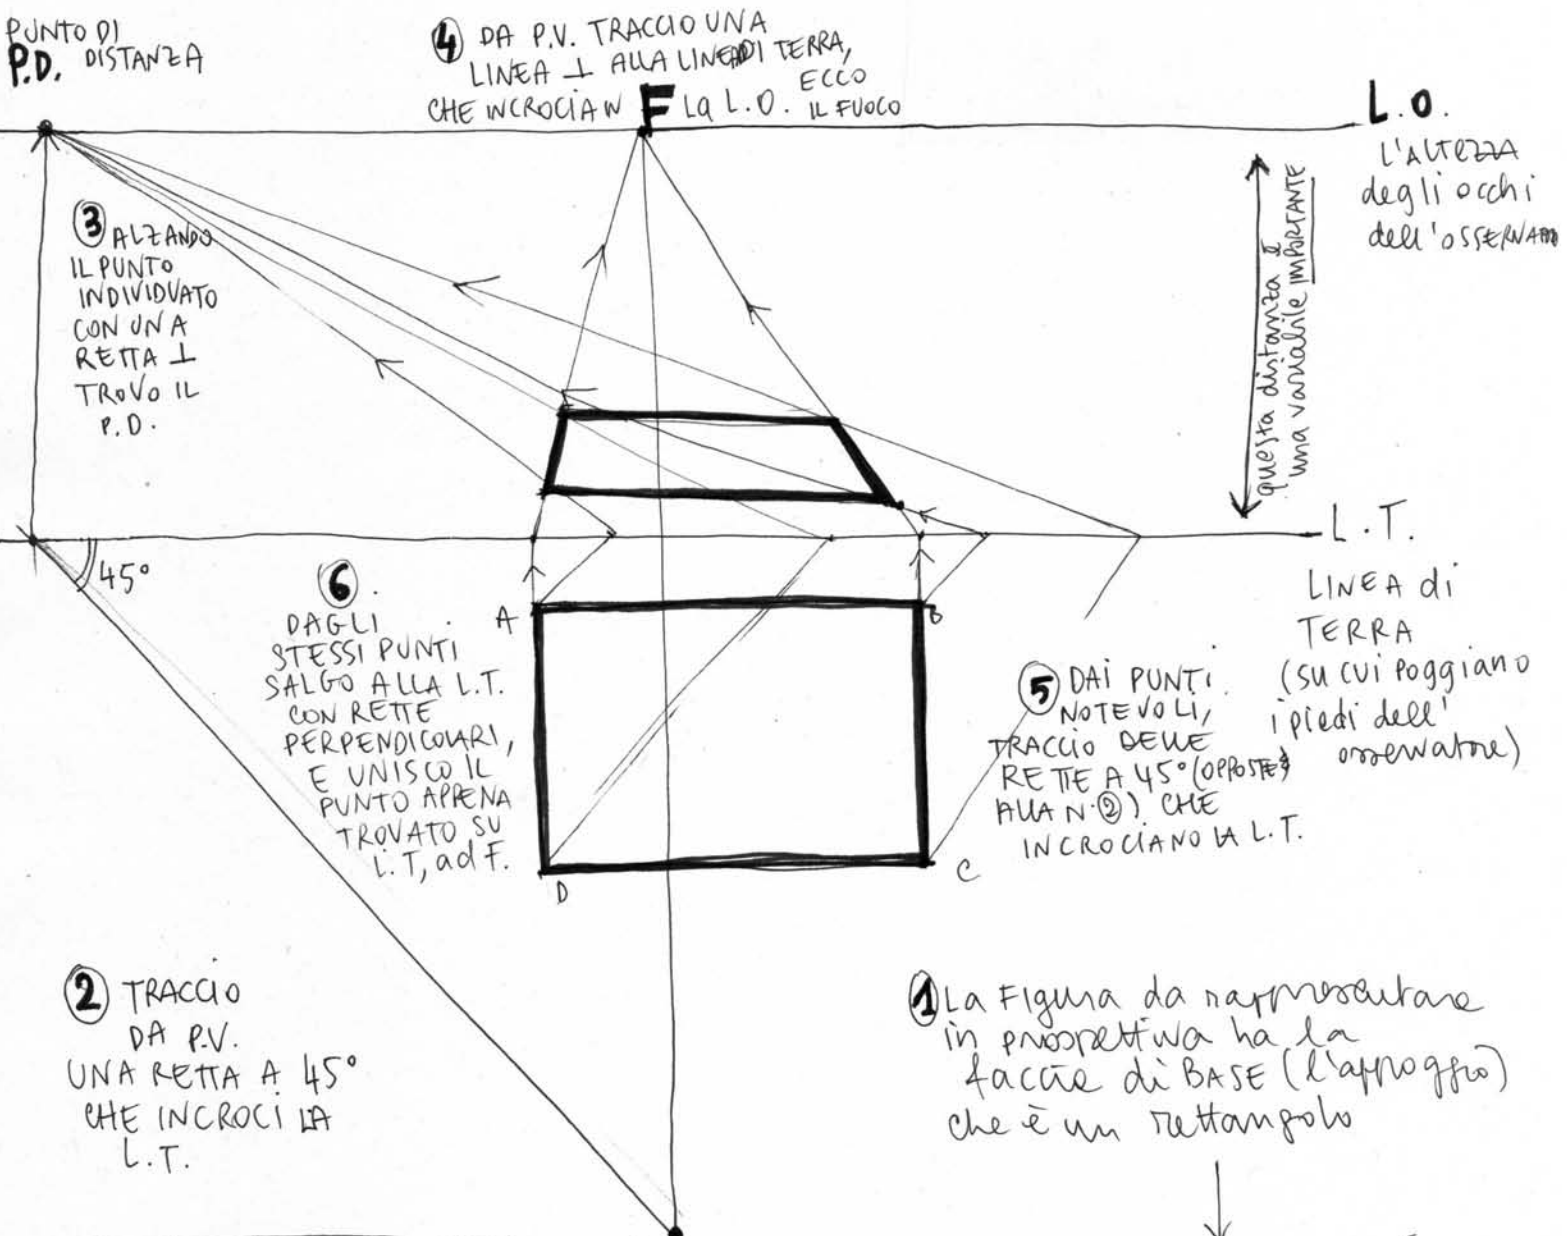 PUNTO DI
P.D. DISTANZA
④ DA P.V. TRACCIO UNA
LINEA ⊥ ALLA LINEA DI TERRA,
ECCO
CHE INCROCIA IN F LA L.O. IL FUOCO
L.O.
L'ALTEZZA
degli occhi
dell'
questa distanza è
una variabile IMPORTANTE
③ ALZANDO
IL PUNTO
INDIVIDUATO
CON UNA
RETTA ⊥
TROVO IL
P.D.
L.T.
LINEA di
TERRA
(SU CUI Poggiano
i piedi dell'
osservatore)
45°
⑥
DAGLI
STESSI PUNTI
SALGO ALLA L.T.
CON RETTE
PERPENDICOLARI,
E UNISCO IL
PUNTO APPENA
TROVATO SU
L.T, ad F.
A
B
D
C
⑤ DAI PUNTI
NOTEVOLI,
TRACCIO DELLE
RETTE A 45° (OPPOSTE
ALLA N.②) CHE
INCROCIANO LA L.T.
② TRACCIO
DA P.V.
UNA RETTA A 45°
CHE INCROCI LA
L.T.
① La Figura da rappresentare
in prospettiva ha la
faccia di BASE (l'appoggio)
che è un rettangolo